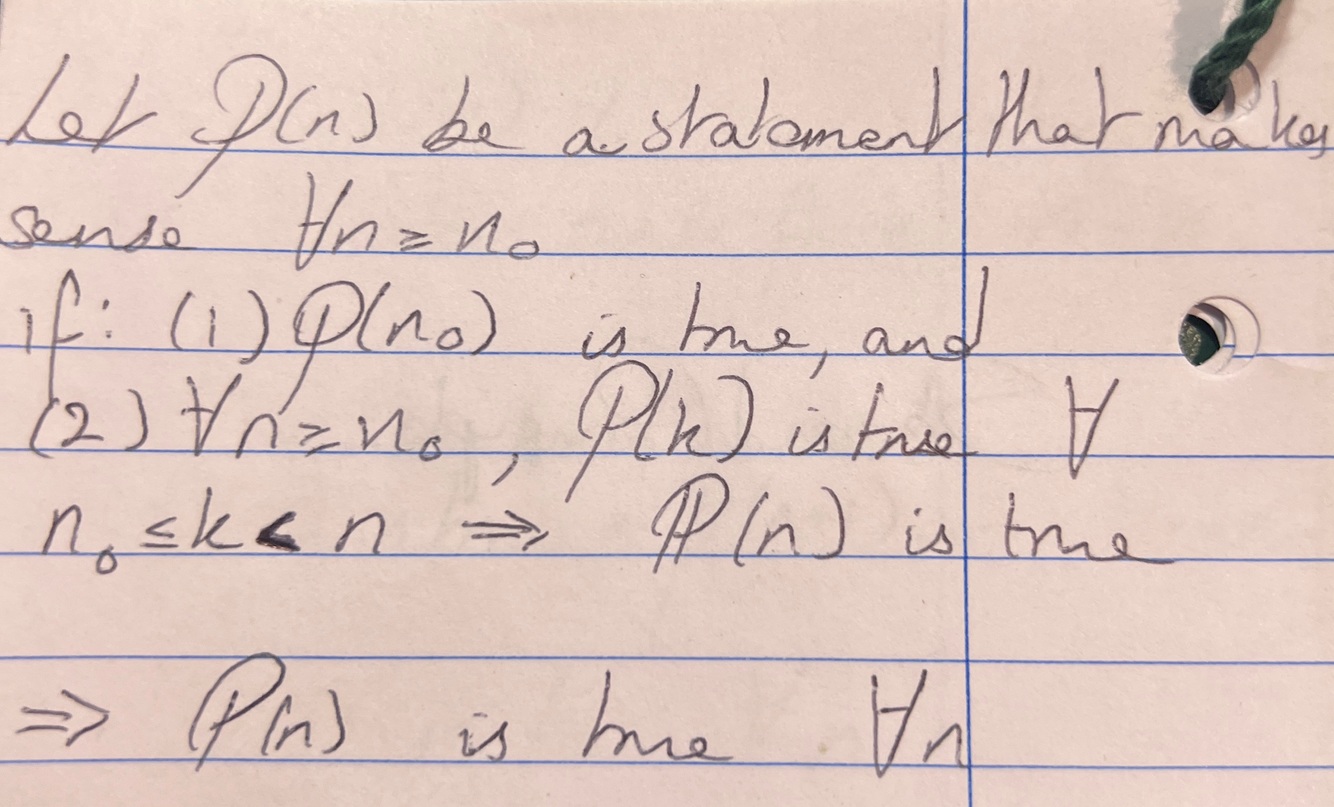 Let P(n) be a statement that makes
sense ∀n ≥ n₀
if: (1) P(n₀) is true, and
(2) ∀n ≥ n₀, P(k) is true ∀
n₀ ≤ k < n ⇒ P(n) is true
⇒ P(n) is true ∀n